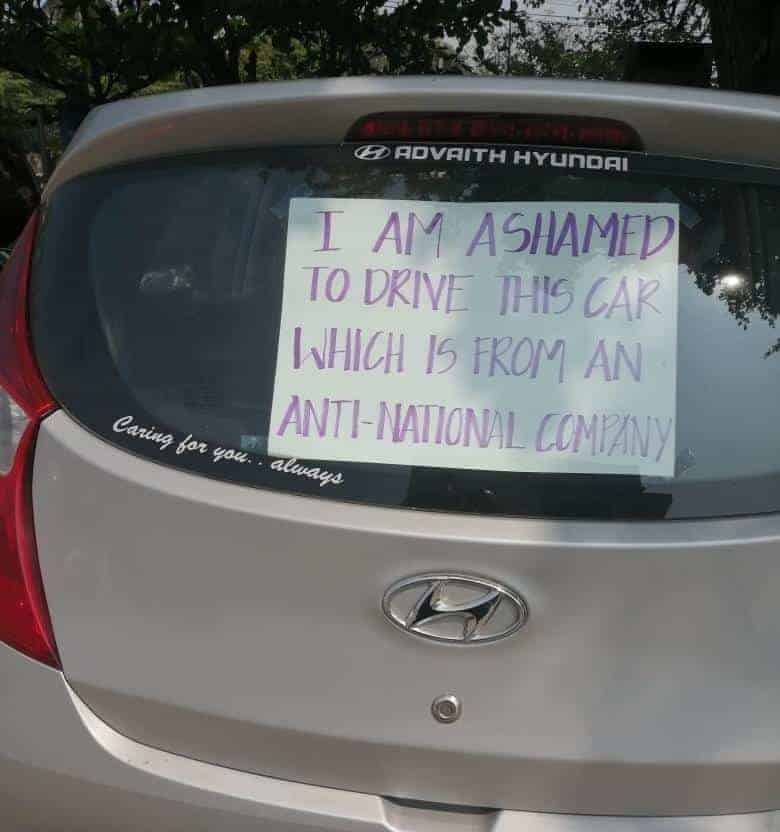 ADVAITH HYUNDAI
I AM ASHAMED
TO DRIVE THIS CAR
WHICH IS FROM AN
ANTI-NATIONAL COMPANY
Caring for you.. always